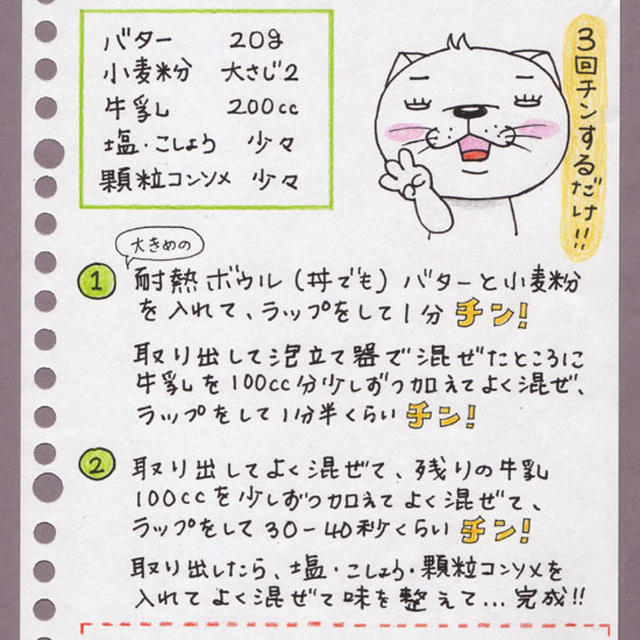 バター 20g
小麦粉 大さじ2
牛乳 200cc
塩・こしょう 少々
顆粒コンソメ 少々
3回チンするだけ!!
大きめの
1 耐熱ボウル(丼でも)バターと小麦粉
を入れて、ラップをして1分チン!
取り出して泡立て器で混ぜたところに
牛乳を100cc分少しずつ加えてよく混ぜ、
ラップをして1分半くらいチン!
2 取り出してよく混ぜて、残りの牛乳
100ccを少しずつ加えてよく混ぜて、
ラップをして30-40秒くらいチン!
取り出したら、塩・こしょう・顆粒コンソメを
入れてよく混ぜて味を整えて...完成!!